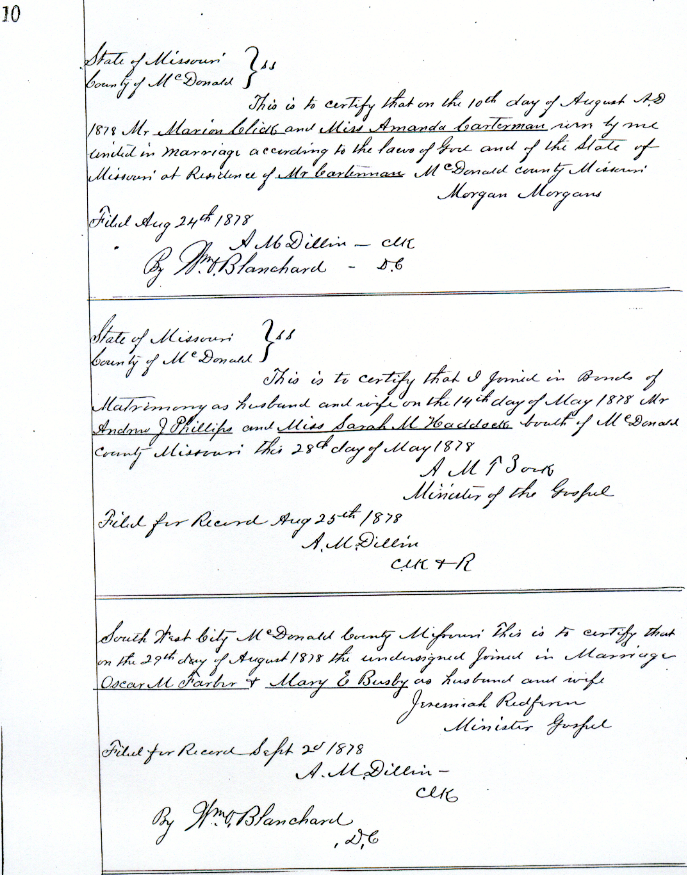 10
State of Missouri } ss
County of McDonald
This is to certify that on the 10th day of August A.D
1878 Mr Marion and Miss Amanda Carterman wern by me
united in marriage according to the laws of God and of the State of
Missouri at Residence of Mr Carterman McDonald county Missouri
Morgan Morgans
Filed Aug 24th 1878
A M Dillin - clk
By Wm O. Blanchard - D.C
State of Missouri } ss
County of McDonald
This is to certify that I Joined in Bonds of
Matrimony as husband and wife on the 14th day of May 1878 Mr
Andrew J Phillips and Miss Sarah M Haddock bouth of McDonald
County Missouri this 28th day of May 1878
A M
Minister of the Gospel
Filed for Record Aug 25th 1878
A. M. Dillin
Clk & R
South West City McDonald County Missouri This is to certify that
on the 29th day of August 1878 the undersigned Joined in Marriage
Oscar M & Mary E Busby as husband and wife
Jeremiah Redfern
Minister Gospel
Filed for Record Sept 2d 1878
A. M. Dillin -
Clk
By Wm O. Blanchard
, D.C